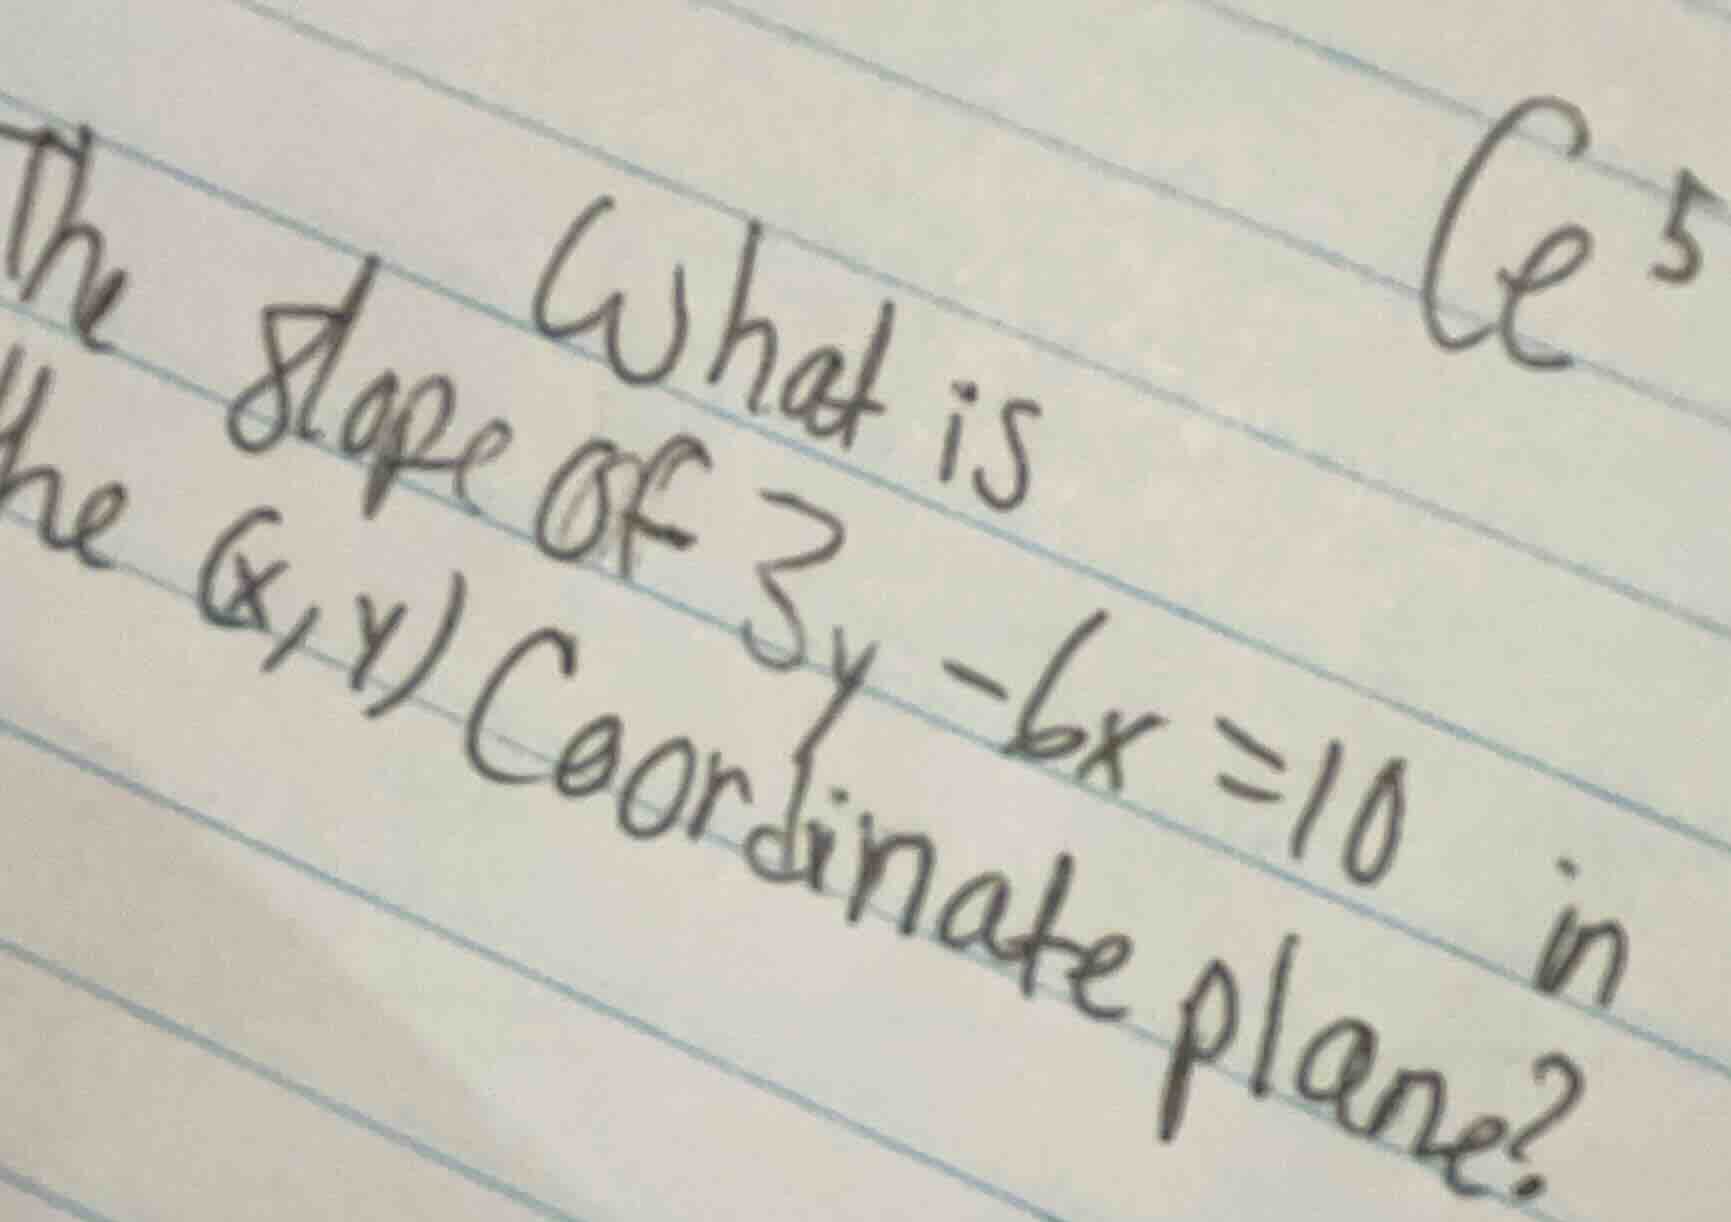 Ce⁵
What is
The slope of 3y - 6x = 10 in
the (x, y) Coordinate plane?